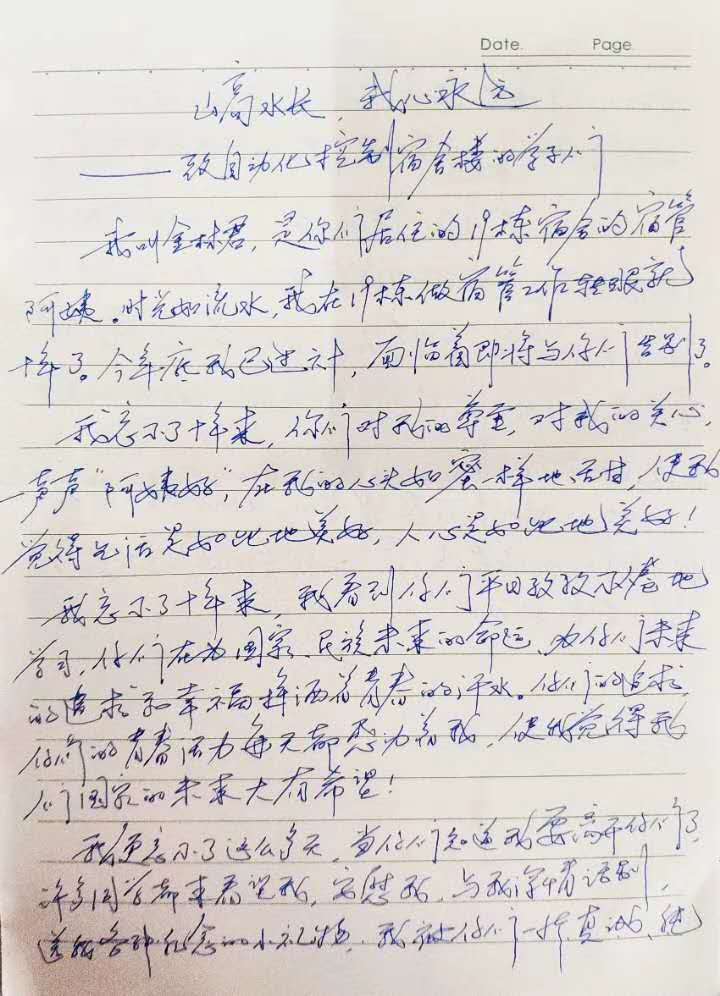 Date. Page.
山高水长，我心永远
——致自动化控制宿舍楼的学子们
我叫金林君，是你们居住的19栋宿舍的宿管
阿姨。时光如流水，我在19栋做宿管工作转眼就
十年了。今年底我已过六十，面临着即将与你们告别了。
我忘不了十年来，你们对我的尊重，对我的关心，
一声声“阿姨好”，在我的心头如蜜一样地活甘，使我
觉得生活是如此地美好，人心是如此地美好！
我忘不了十年来，我看到你们平日孜孜不倦地
学习，你们在为国家、民族未来的命运，为你们未来
的追求和幸福挥洒着青春的汗水。你们的追求，
你们的青春活力每天都感动着我，使我觉得我
们国家的未来大有希望！
我更忘不了这么多天，当你们知道我要离开你们了，
许多同学都来看望我，安慰我，与我深情话别，
送我各种纪念的小礼物，我被你们一片真诚、